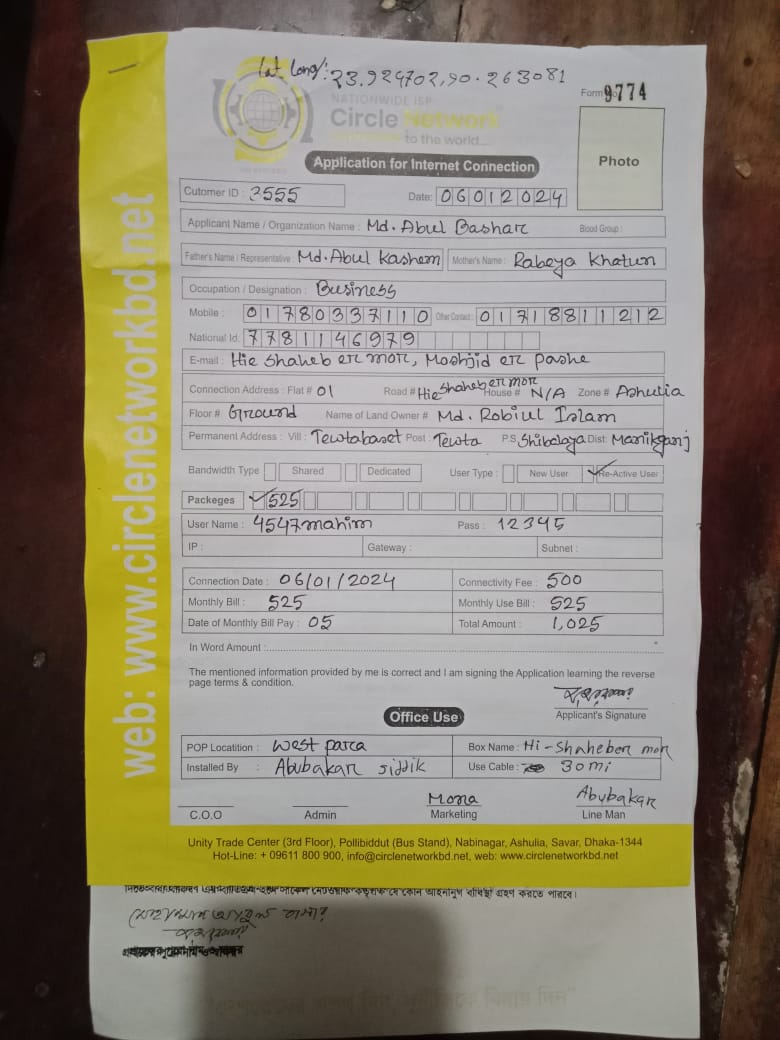 Lat Long: 23.924702,90.263081
Form No 9774
NATIONWIDE ISP
Circle Network
to the world...
Photo
Application for Internet Connection
Cutomer ID : 3555 Date: 06012024
Applicant Name / Organization Name : Md. Abul Bashar Blood Group :
Father's Name / Representative : Md. Abul Kashem Mother's Name : Rabeya Khatun
Occupation / Designation : Business
Mobile : 01780337110 Other Contact : 01718811212
National Id. 7781146979
E-mail : Hie Shaheb er mor, Moshjid er pashe
Connection Address : Flat # 01 Road # Hie Shaheb er mor House # N/A Zone # Ashulia
Floor # Ground Name of Land Owner # Md. Robiul Islam
Permanent Address : Vill : Tewtabaset Post : Tewta P.S Shibalaya Dist: Manikganj
Bandwidth Type Shared Dedicated User Type : New User Re-Active User
Packeges 525
User Name : 4547mahim Pass : 12345
IP : Gateway : Subnet :
Connection Date : 06/01/2024 Connectivity Fee : 500
Monthly Bill : 525 Monthly Use Bill : 525
Date of Monthly Bill Pay : 05 Total Amount : 1,025
In Word Amount :
The mentioned information provided by me is correct and I am signing the Application learning the reverse
page terms & condition.
Applicant's Signature
Office Use
POP Locatition : West para Box Name : Hi-Shaheber mor
Installed By : Abubakar siddik Use Cable : 30mi
Mona Abubakar
C.O.O Admin Marketing Line Man
Unity Trade Center (3rd Floor), Pollibiddut (Bus Stand), Nabinagar, Ashulia, Savar, Dhaka-1344
Hot-Line: + 09611 800 900, info@circlenetworkbd.net, web: www.circlenetworkbd.net
web: www.circlenetworkbd.net
যে কোন আইনানুগ ব্যবস্থা গ্রহণ করতে পারবে।